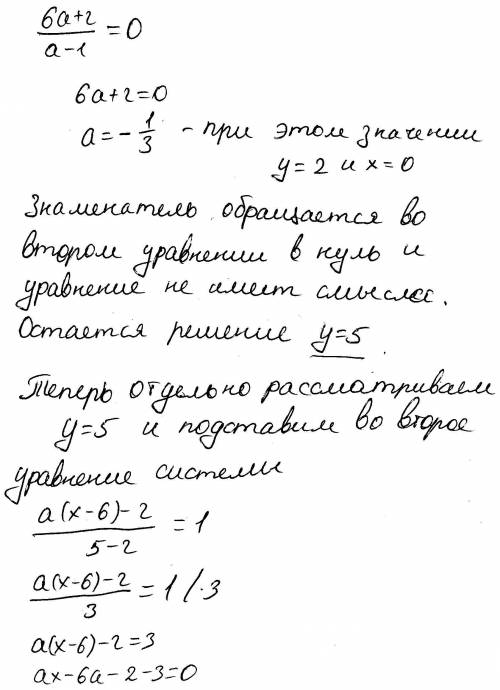 (6a+2)/(a-1) = 0
6a+2=0
a = -1/3 - при этом значении
y=2 и x=0
Знаменатель обращается во
втором уравнении в нуль и
уравнение не имеет смысла.
Остается решение y=5
Теперь отдельно рассматриваем
y=5 и подставим во второе
уравнение системы
(a(x-6)-2)/(5-2) = 1
(a(x-6)-2)/3 = 1 /·3
a(x-6)-2=3
ax-6a-2-3=0